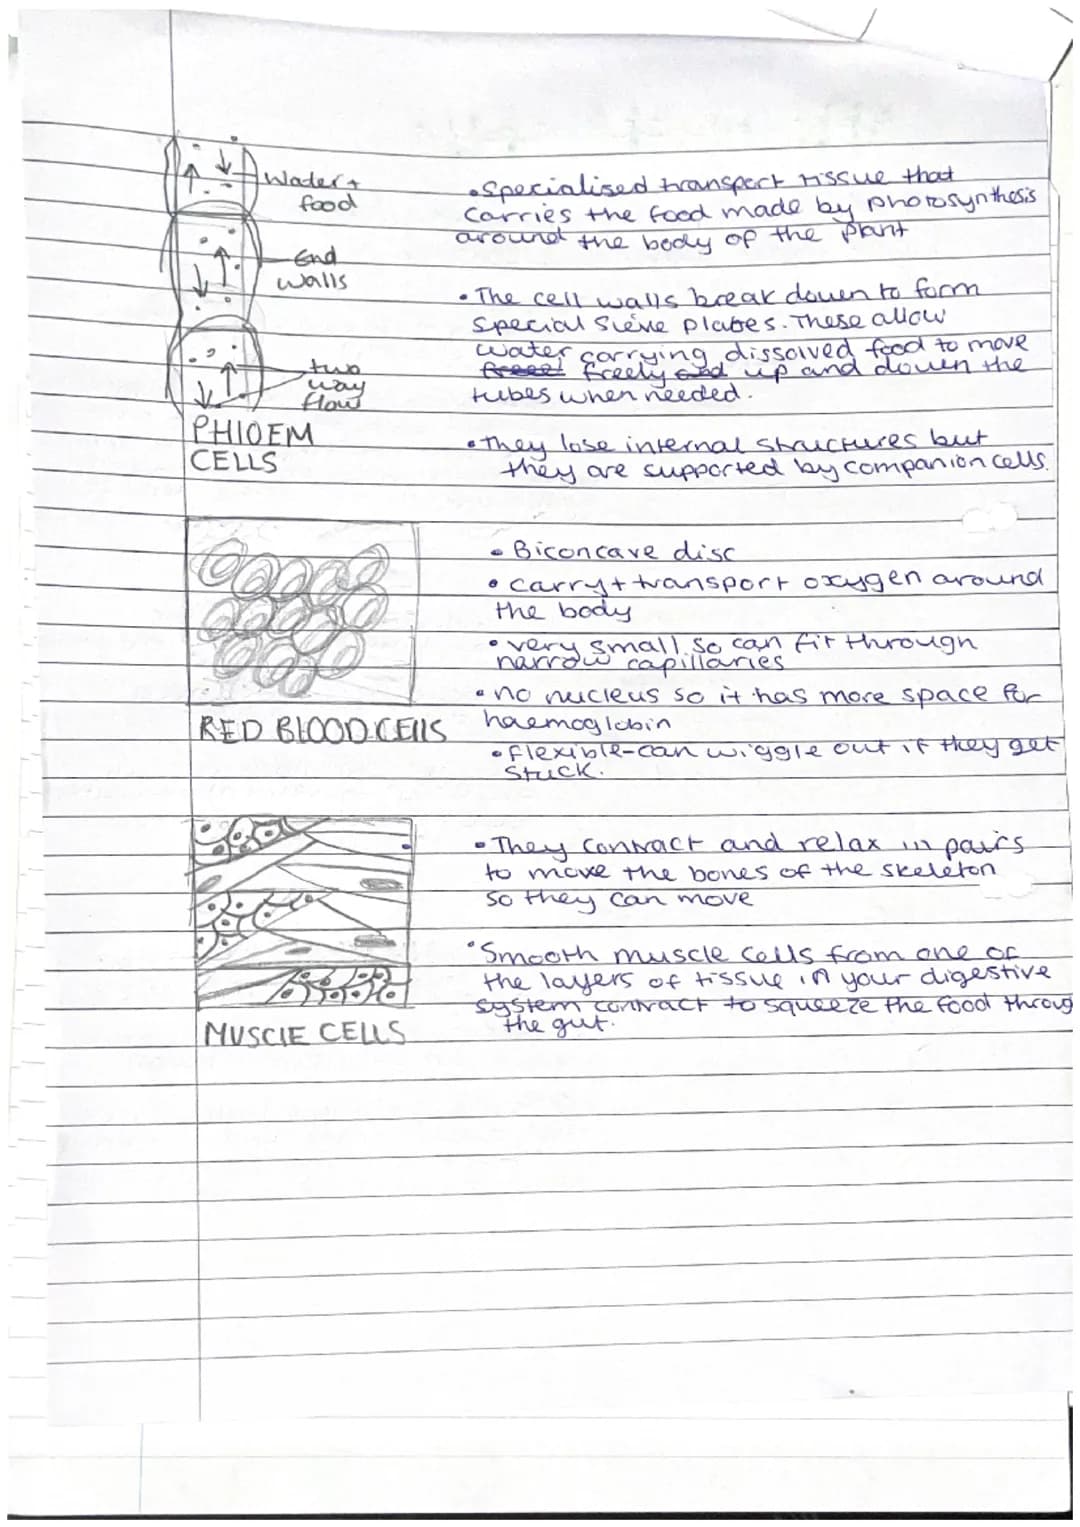 Water +
food
End
walls
two
way
flow
PHlOEM
CELLS
• Specialised transport tissue that
carries the food made by photosynthesis
around the body of the plant
• The cell walls break down to form
special sieve plates. These allow
water carrying dissolved food to move
freely up and down the
tubes when needed.
• They lose internal structures but
they are supported by companion cells.
RED BlOOD CEllS
• Biconcave disc
• carry + transport oxygen around
the body
• very small so can fit through
narrow capillaries
• no nucleus so it has more space for
haemoglobin
• flexible - can wiggle out if they get
stuck.
MUSClE CELLS
• They contract and relax in pairs
to move the bones of the skeleton
so they can move
• Smooth muscle cells from one of
the layers of tissue in your digestive
system contract to squeeze the food throug
the gut.